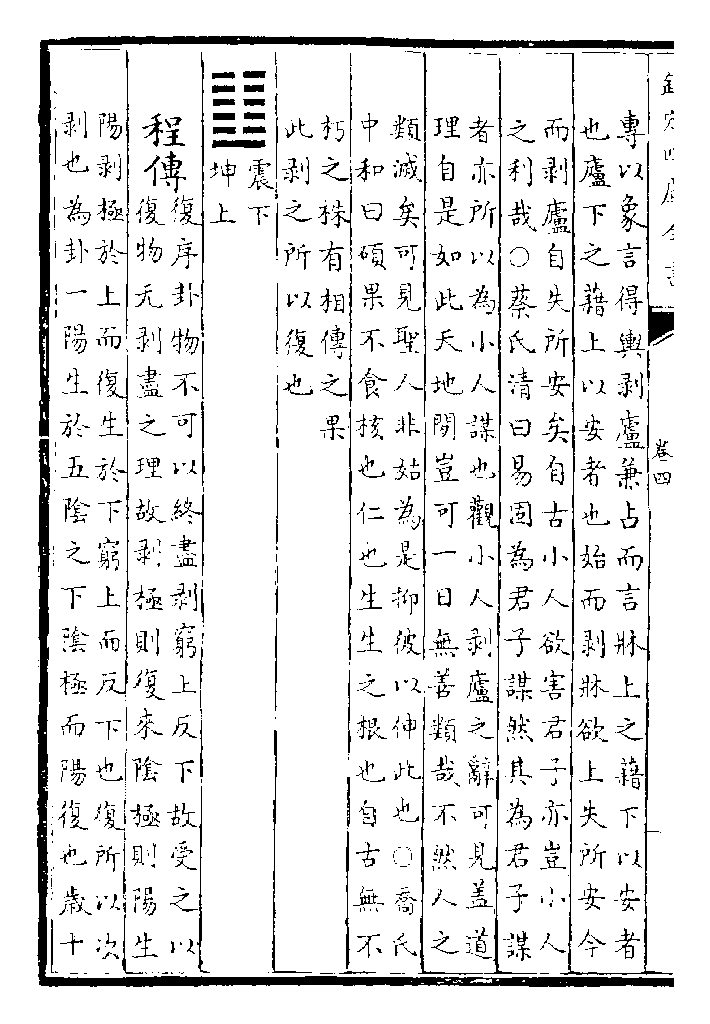 欽定四庫全書
卷四
專以象言得輿剥廬兼占而言牀上之藉下以安者
也廬下之藉上以安者也始而剥牀欲上失所安今
而剥廬自失所安矣自古小人欲害君子亦豈小人
之利哉○蔡氏清曰易固為君子謀然其為君子謀
者亦所以為小人謀也觀小人剥廬之辭可見盖道
理自是如此天地間豈可一日無善類哉不然人之
類滅矣可見聖人非姑為是抑彼以伸此也○喬氏
中和曰碩果不食核也仁也生生之根也自古無不
朽之株有相傳之果
此剥之所以復也
震下
坤上
程傳
復序卦物不可以終盡剥窮上反下故受之以
復物无剥盡之理故剥極則復來陰極則陽生
陽剥極於上而復生於下窮上而反下也復所以次
剥也為卦一陽生於五陰之下陰極而陽復也歲十